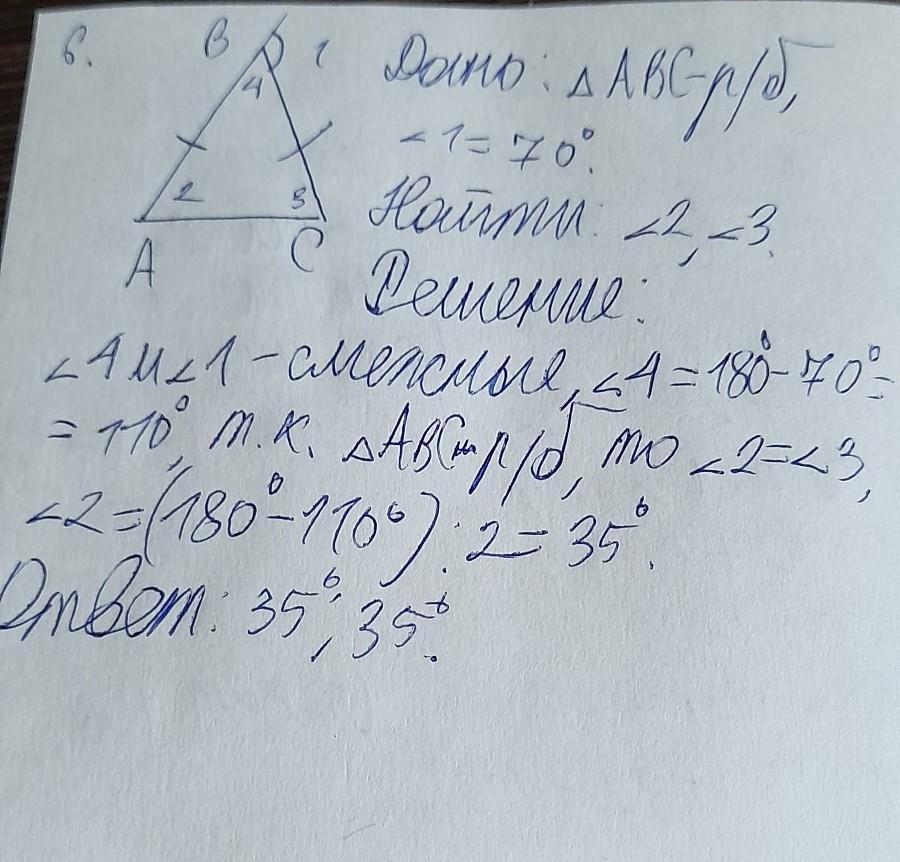 6.
B 1
4
2 3
A C
Дано: △ABC-р/б,
∠1=70°.
Найти: ∠2, ∠3.
Решение:
∠4 и ∠1 - смежные, ∠4=180°-70°=
=110°, т.к. △ABC-р/б, то ∠2=∠3,
∠2=(180°-110°):2=35°.
Ответ: 35°, 35°.